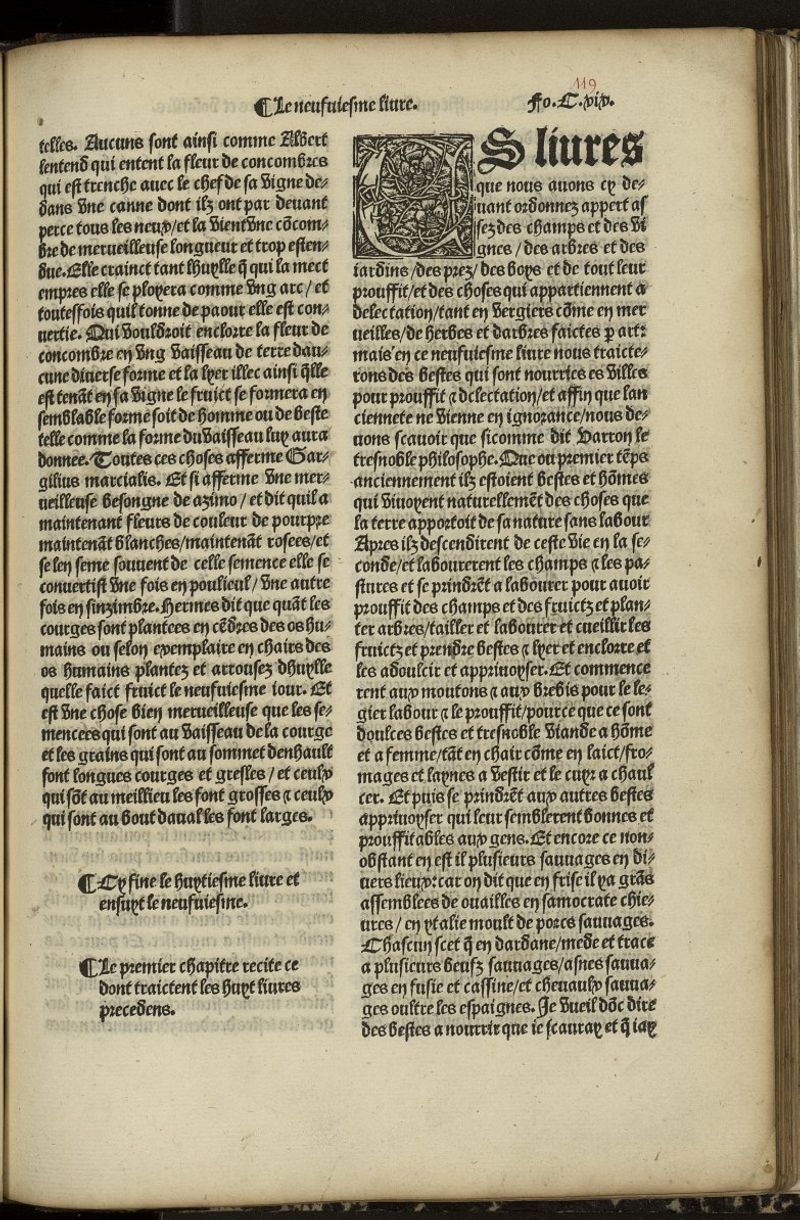 119
¶Le neufuiesme liure. Fo. C.xix.
telles. Aucuns sont ainsi comme Albert
lentend qui entent la fleur de concombres
qui est trenche auec le chef de sa vigne de-
dans vne canne dont ilz ont par deuant
perce tous les neux/et la vient vne cõcom-
bre de merueilleuse longueur et trop esten-
due. Elle crainct tant lhuylle q̃ qui la mect
empres elle se ployera comme vng arc/et
toutesfois quil tonne de paour elle est con-
uertie. Qui vouldroit enclorre la fleur de
concombre en vng vaisseau de terre dau-
cune diuerse forme et la lyer illec ainsi q̃lle
est tenãt en sa vigne le fruict se formera en
semblable forme soit de homme ou de beste
telle comme la forme du vaisseau luy aura
donnee. Toutes ces choses afferme Gar-
gilius marcialis. Et si afferme vne mer-
ueilleuse besongne de azimo/et dit quil a
maintenant fleurs de couleur de pourpre
maintenãt blanches/maintenãt rosees/et
se len seme souuent de celle semence elle se
conuertist vne fois en poulieul/vne autre
fois en sinzimbre. Hermes dit que quãt les
courges sont plantees en cẽdres des os hu-
mains ou selon exemplaire en chairs des
os humains plantez et arrousez dhuylle
quelle faict fruict le neufuiesme iour. Et
est vne chose bien merueilleuse que les se-
mences qui sont au vaisseau de la courge
et les grains qui sont au sommet denhault
font longues courges et gresles/et ceulx
qui sõt au meillieu les font grosses ⁊ ceulx
qui sont au bout daual les font larges.
¶Cy fine le huytiesme liure et
ensuyt le neufuiesme.
¶Le premier chapitre recite ce
dont traictent les huyt liures
precedens.
ES liures
que nous auons cy de-
uant ordonnez appert as
sez des champs et des vi
gnes/des arbres et des
iardins/des prez/des boys et de tout leur
prouffit/et des choses qui appartiennent a
delectation/tant en vergiers cõme en mer
ueilles/de herbes et darbres faictes p art:
mais en ce neufuiesme liure nous traicte-
rons des bestes qui sont nourries es villes
pour prouffit ⁊ delectation/et affin que lan
ciennete ne vienne en ignorance/nous de-
uons scauoir que sicomme dit Varron le
tresnoble philosophe. Que ou premier tẽps
anciennement ilz estoient bestes et hõmes
qui viuoyent naturellemẽt des choses que
la terre apportoit de sa nature sans labour
Apres ilz descendirent de ceste vie en la se-
conde/et labourerent les champs ⁊ les pa-
stures et se prindrẽt a labourer pour auoir
prouffit des champs et des fruictz et plan-
ter arbres/tailler et labourer et cueillir les
fruictz et prendre bestes ⁊ lyer et enclorre et
les adoulcir et appriuoyser. Et commence
rent aux moutons ⁊ aux brebis pour le le-
gier labour ⁊ le prouffit/pource que ce sont
doulces bestes et tresnoble viande a hõme
et a femme/tãt en chair cõme en laict/fro-
mages et laynes a vestir et le cuyr a chaul
cer. Et puis se prindrẽt aux autres bestes
appriuoyser qui leur semblerent bonnes et
prouffitables aux gens. Et encore ce non-
obstant en est il plusieurs sauuages en di-
uers lieux: car on dit que en frise il ya grãs
assemblees de ouailles en samocrate chie-
ures/en ytalie moult de porcs sauuages.
Chascun scet q̃ en dardane/mede et trace
a plusieurs beufz sauuages/asnes sauua-
ges en fusie et cassine/et cheuaulx sauua-
ges oultre les espaignes. Je vueil dõc dire
des bestes a nourrir que ie scauray et q̃ iay